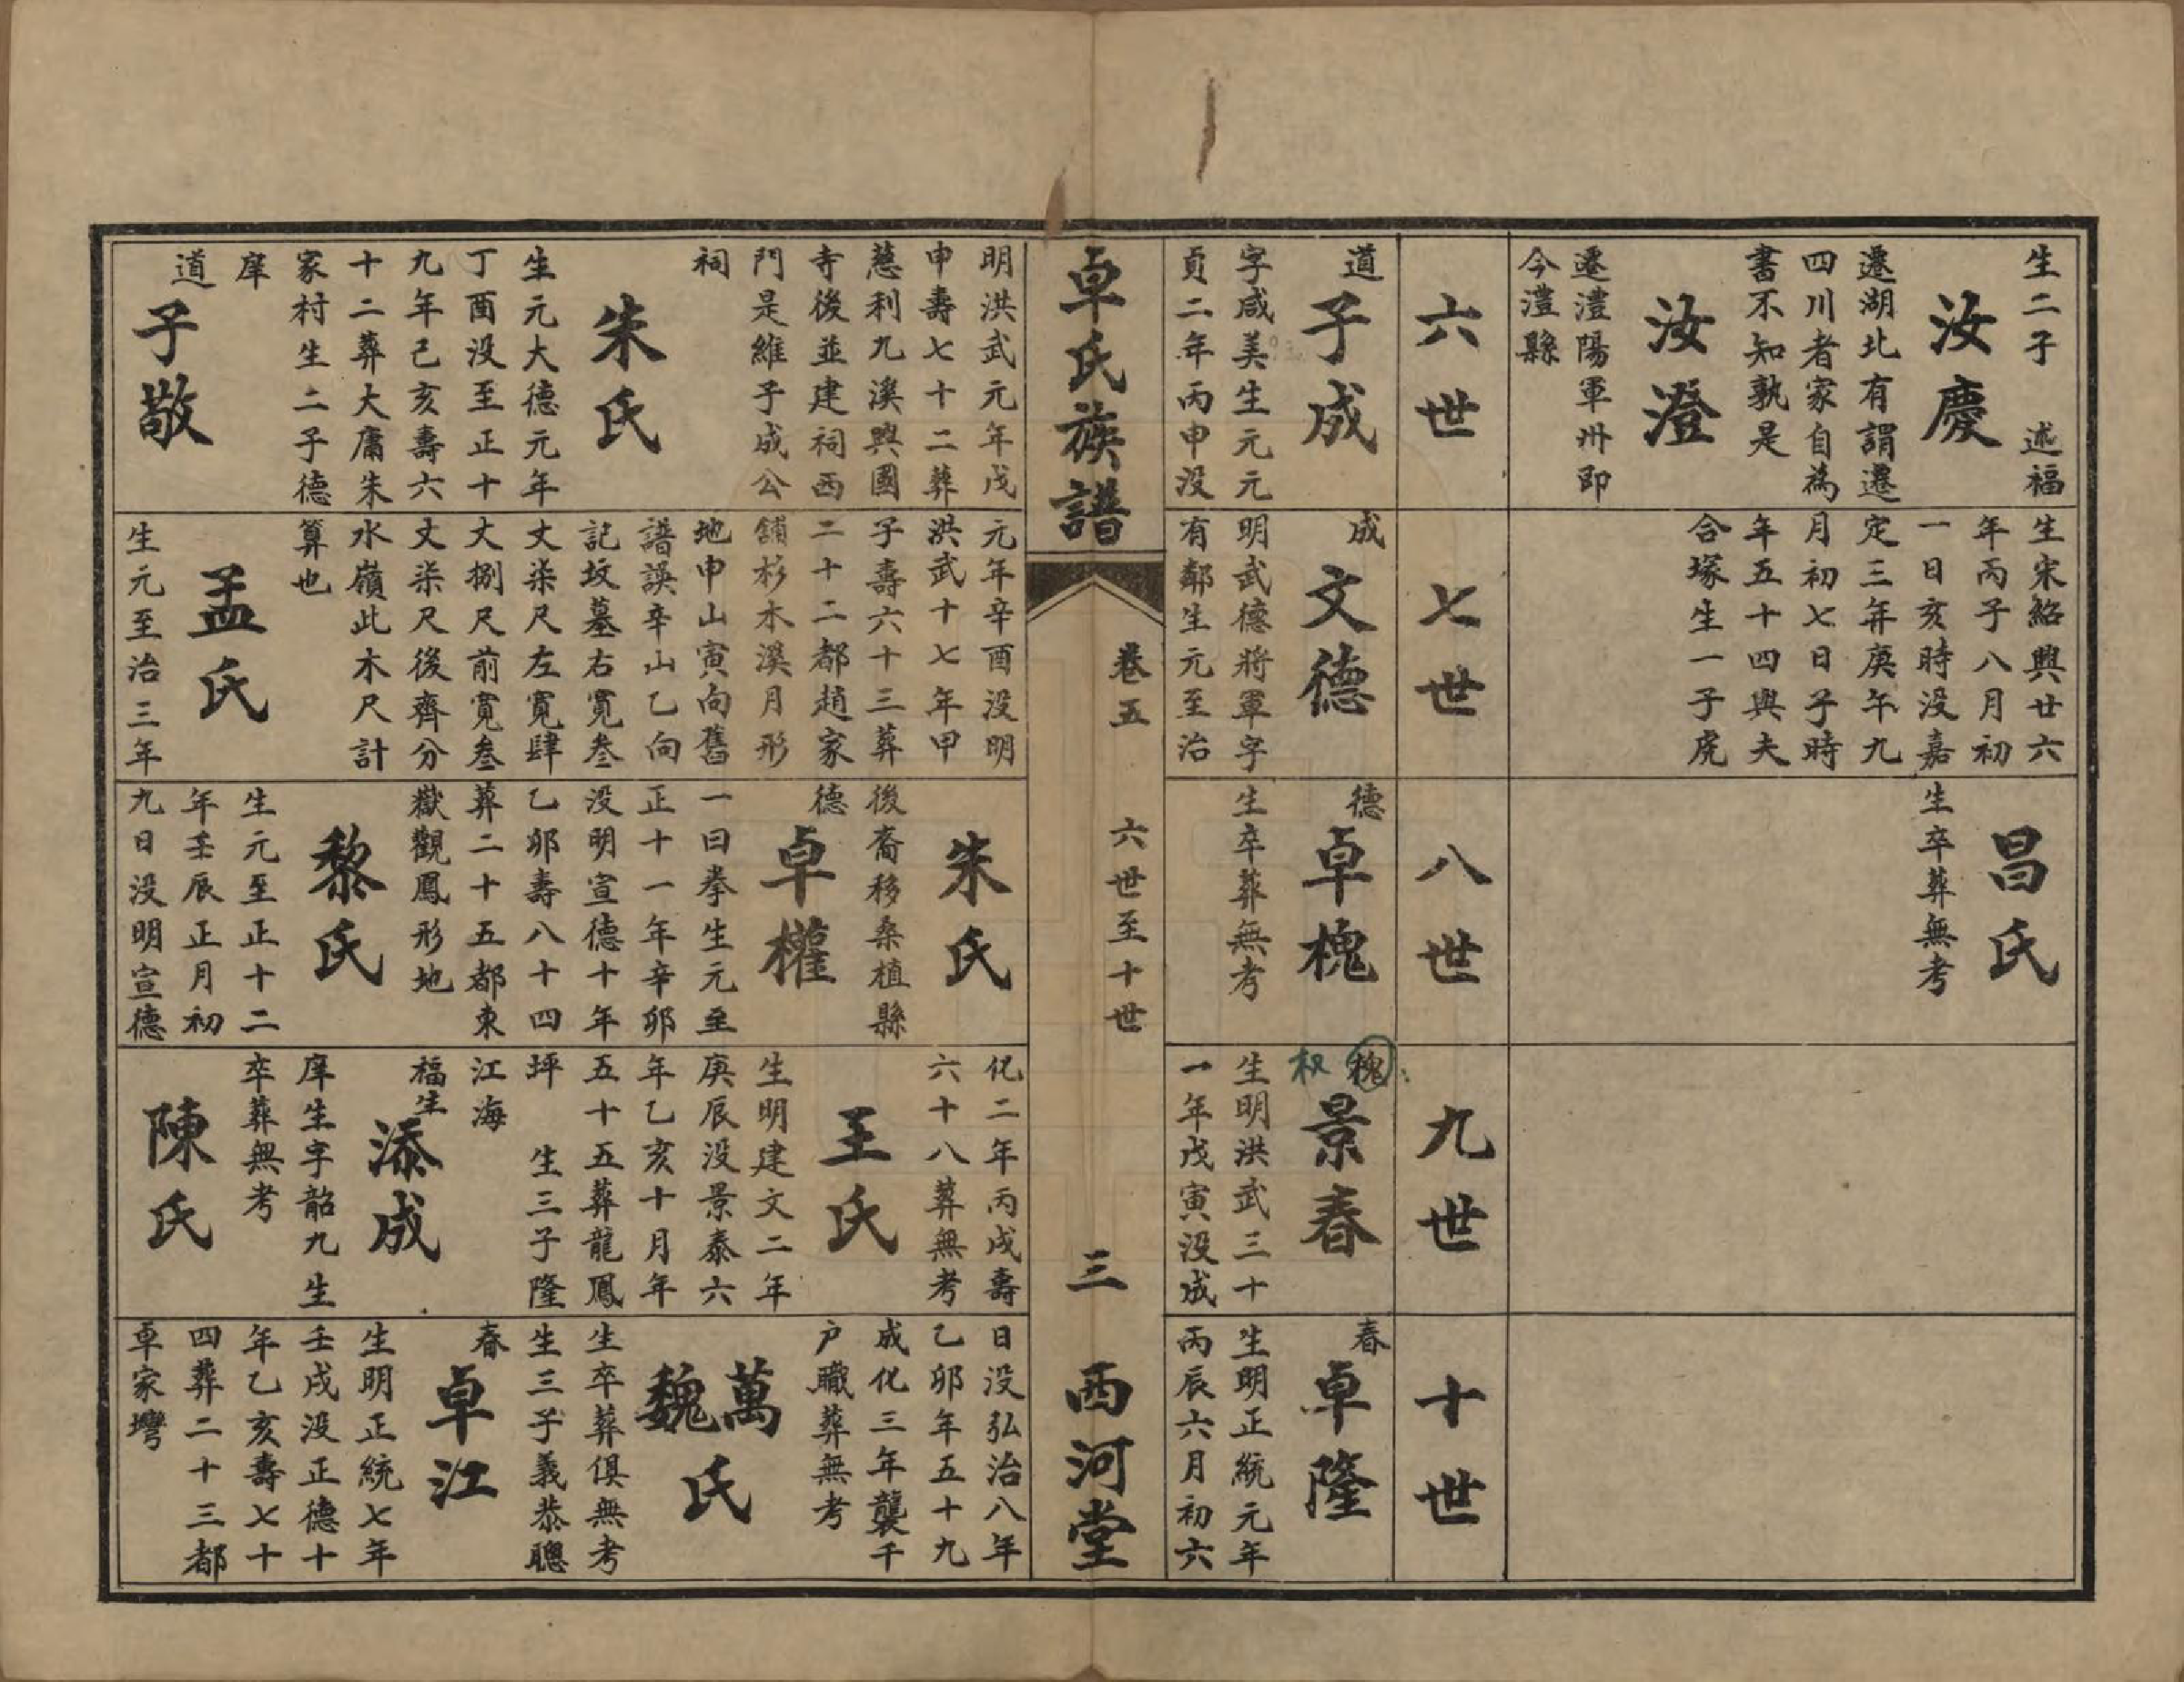 生二子 述福
汝慶
遷湖北有謂遷
四川者家自為
書不知孰是
汝澄
遷澧陽軍州即
今澧縣
生宋紹興廿六
年丙子八月初
一日亥時没嘉
定三年庚午九
月初七日子時
年五十四與夫
合塚生一子虎
昌氏
生卒葬無考
六世
七世
八世
九世
十世
道
子成
字咸美生元元
貞二年丙申没
成
文德
明武德將軍字
有鄰生元至治
德
卓槐
生卒葬無考
槐
权
景春
生明洪武三十
一年戊寅没成
春
卓隆
生明正統元年
丙辰六月初六
卓氏族譜
卷五
六世至十世
三
西河堂
明洪武元年戊
申壽七十二葬
慈利九溪興國
寺後並建祠西
門是維子成公
祠
朱氏
生元大德元年
丁酉没至正十
九年己亥壽六
十二葬大庸朱
家村生二子德
庠
道
子敬
元年辛酉没明
洪武十七年甲
子壽六十三葬
二十二都趙家
舖杉木溪月形
地申山寅向舊
譜誤辛山乙向
記坟墓右寬叁
丈柒尺左寬肆
丈捌尺前寬叁
丈柒尺後齊分
水嶺此木尺計
算也
孟氏
生元至治三年
朱氏
後裔移桑植縣
德
卓權
一曰拳生元至
正十一年辛卯
没明宣德十年
乙卯壽八十四
葬二十五都東
嶽觀鳳形地
黎氏
生元至正十二
年壬辰正月初
九日没明宣德
化二年丙戌壽
六十八葬無考
王氏
生明建文二年
庚辰没景泰六
年乙亥十月年
五十五葬龍鳳
坪 生三子隆
江海
福生
添成
庠生字韶九生
卒葬無考
陳氏
日没弘治八年
乙卯年五十九
成化三年襲千
户職葬無考
萬
魏
氏
生卒葬俱無考
生三子義恭聰
春
卓江
生明正統七年
壬戌没正德十
年乙亥壽七十
四葬二十三都
卓家灣